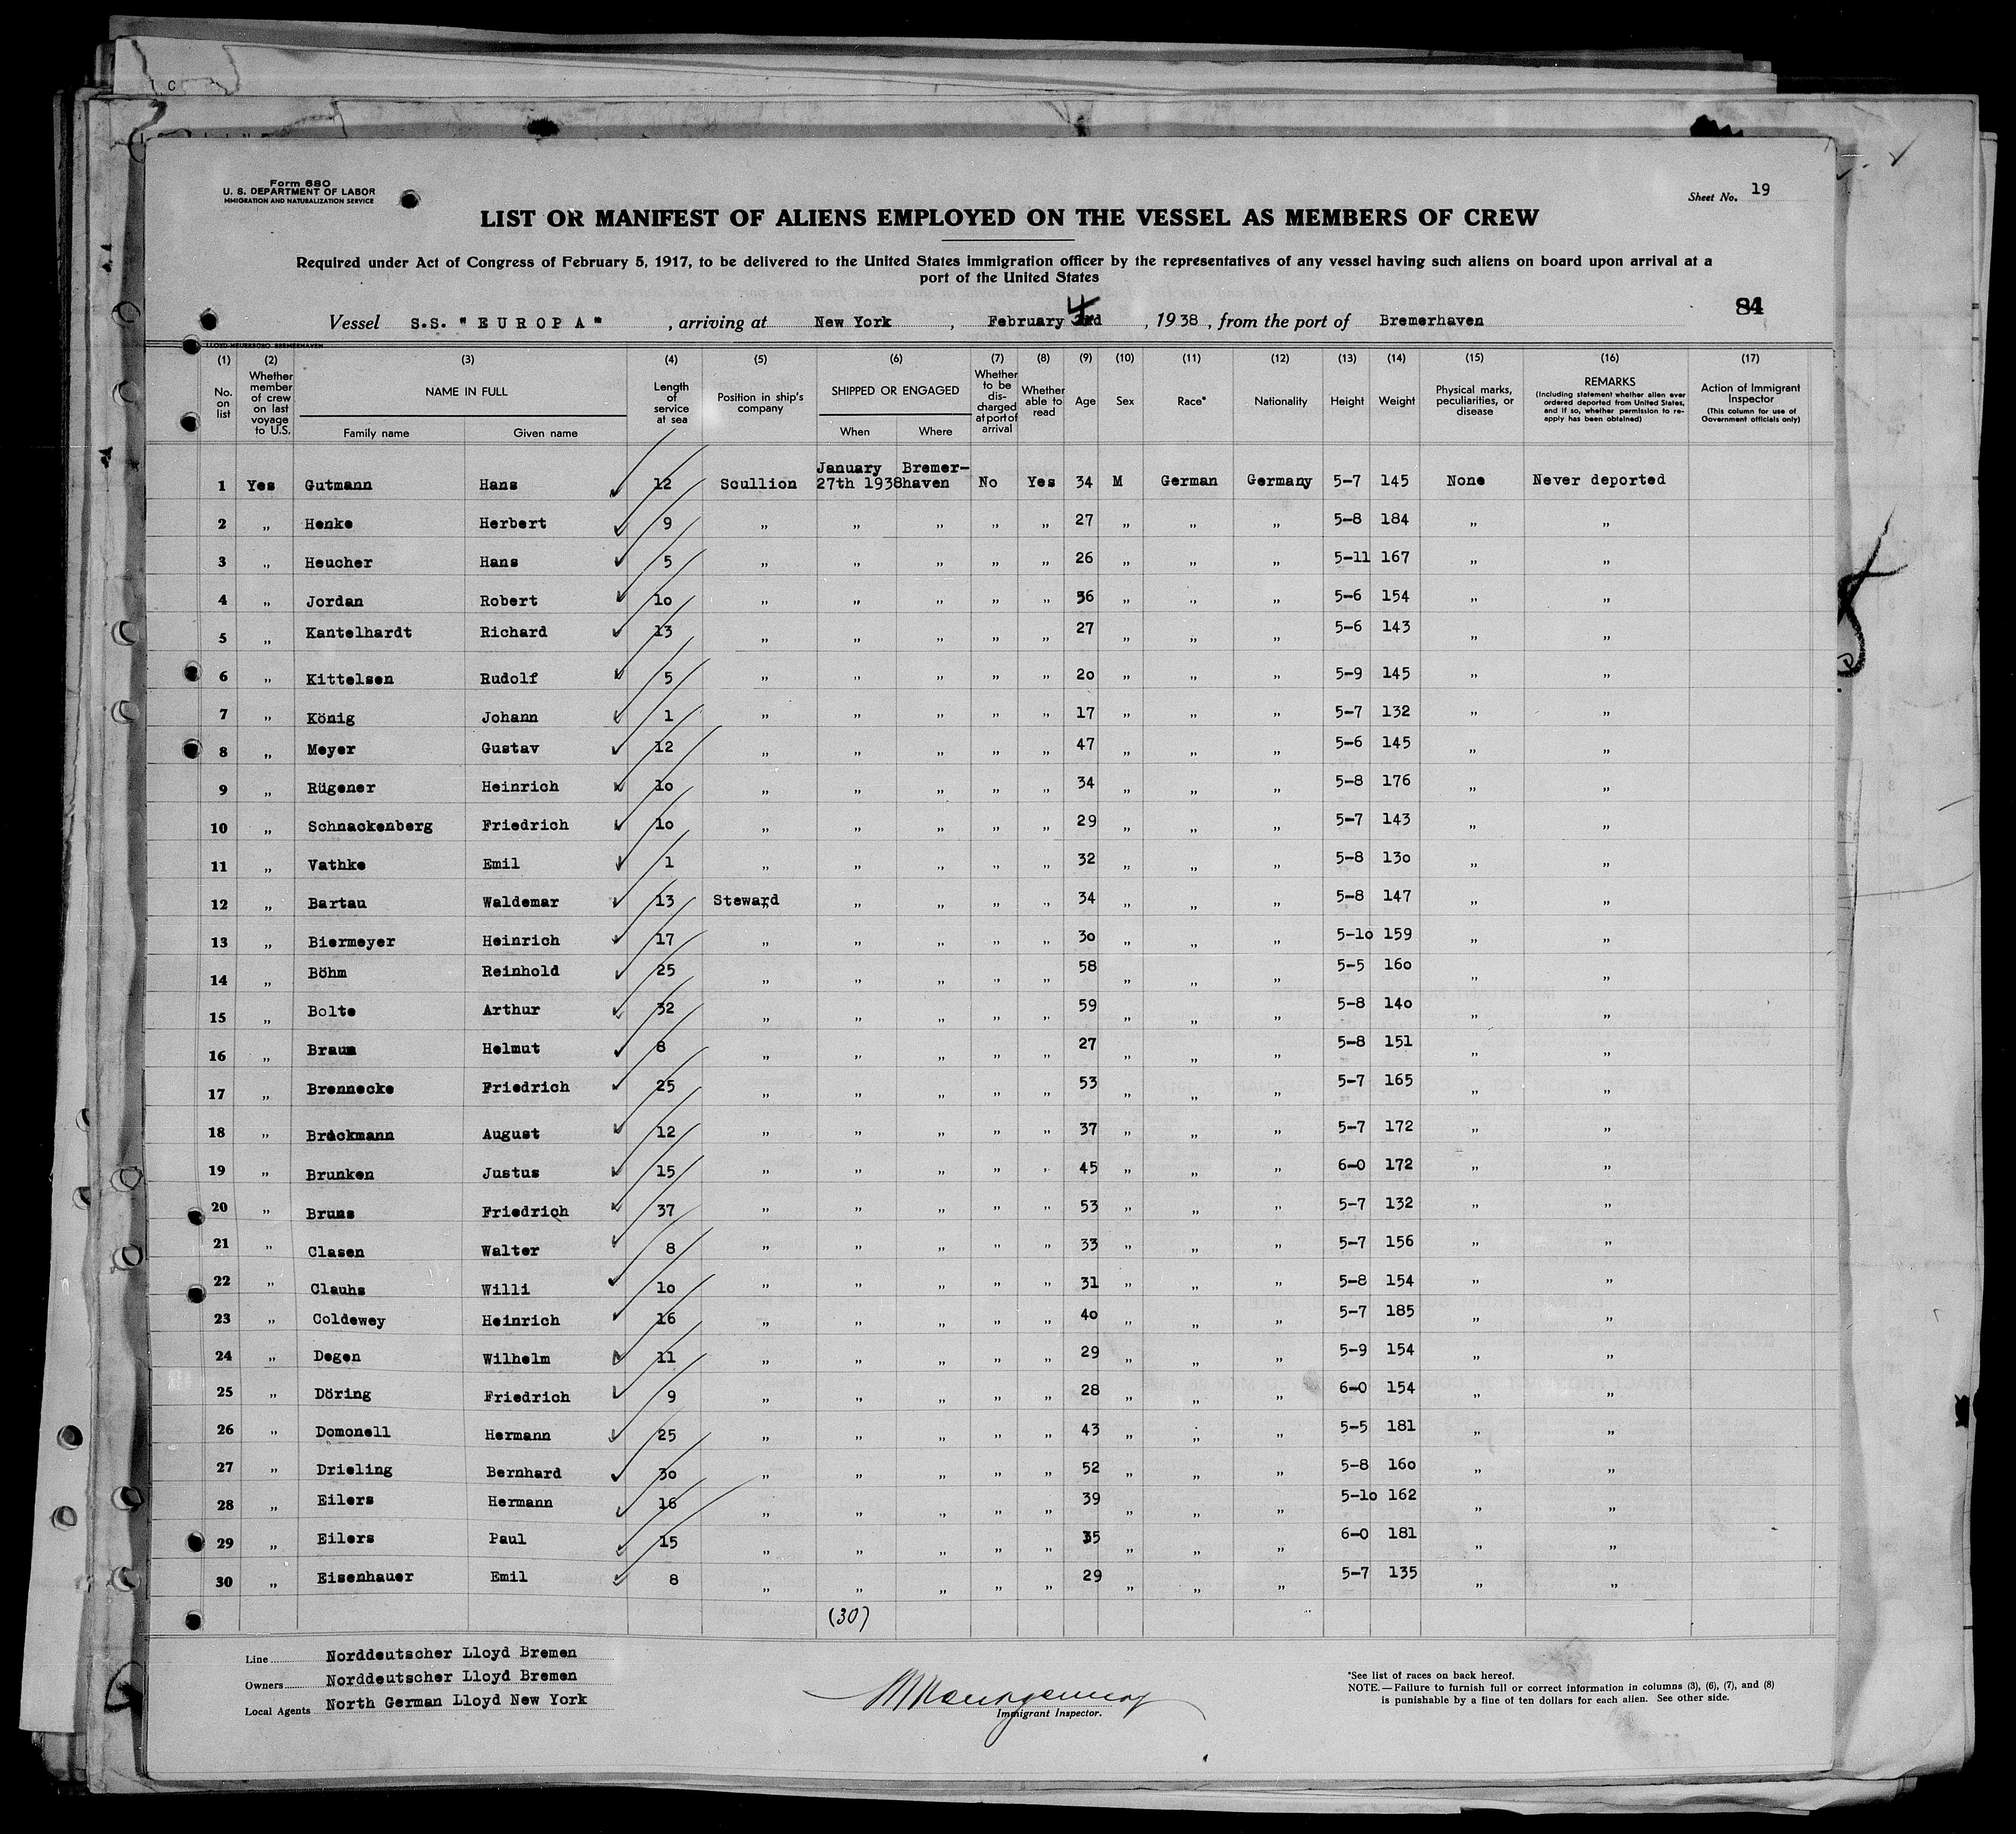 Form 680
U. S. DEPARTMENT OF LABOR
IMMIGRATION AND NATURALIZATION SERVICE
Sheet No. 19
LIST OR MANIFEST OF ALIENS EMPLOYED ON THE VESSEL AS MEMBERS OF CREW
Required under Act of Congress of February 5, 1917, to be delivered to the United States immigration officer by the representatives of any vessel having such aliens on board upon arrival at a
port of the United States
84
Vessel S.S. "EUROPA", arriving at New York, February 4, 1938, from the port of Bremerhaven
(1) (2) (3) (4) (5) (6) (7) (8) (9) (10) (11) (12) (13) (14) (15) (16) (17)
No. on list
Whether member of crew on last voyage to U.S.
NAME IN FULL
Family name Given name
Length of service at sea
Position in ship's company
SHIPPED OR ENGAGED
When Where
Whether to be discharged at port of arrival
Whether able to read
Age
Sex
Race*
Nationality
Height
Weight
Physical marks, peculiarities, or disease
REMARKS
(Including statement whether alien ever ordered deported from United States, and if so, whether permission to reapply has been obtained)
Action of Immigrant Inspector
(This column for use of Government officials only)
1 Yes Gutmann Hans 12 Scullion January 27th 1938 Bremerhaven No Yes 34 M German Germany 5-7 145 None Never deported
2 „ Henke Herbert 9 „ „ „ „ „ 27 „ „ „ 5-8 184 „ „
3 „ Heucher Hans 5 „ „ „ „ „ 26 „ „ „ 5-11 167 „ „
4 „ Jordan Robert 10 „ „ „ „ „ 36 „ „ „ 5-6 154 „ „
5 „ Kantelhardt Richard 13 „ „ „ „ „ 27 „ „ „ 5-6 143 „ „
6 „ Kittelsen Rudolf 5 „ „ „ „ „ 20 „ „ „ 5-9 145 „ „
7 „ König Johann 1 „ „ „ „ „ 17 „ „ „ 5-7 132 „ „
8 „ Meyer Gustav 12 „ „ „ „ „ 47 „ „ „ 5-6 145 „ „
9 „ Rügener Heinrich 10 „ „ „ „ „ 34 „ „ „ 5-8 176 „ „
10 „ Schnackenberg Friedrich 10 „ „ „ „ „ 29 „ „ „ 5-7 143 „ „
11 „ Vathke Emil 1 „ „ „ „ „ 32 „ „ „ 5-8 130 „ „
12 „ Bartau Waldemar 13 Steward „ „ „ „ 34 „ „ „ 5-8 147 „ „
13 „ Biermeyer Heinrich 17 „ „ „ „ „ 30 „ „ „ 5-10 159 „ „
14 „ Böhm Reinhold 25 „ „ „ „ „ 58 „ „ „ 5-5 160 „ „
15 „ Bolte Arthur 32 „ „ „ „ „ 59 „ „ „ 5-8 140 „ „
16 „ Braun Helmut 8 „ „ „ „ „ 27 „ „ „ 5-8 151 „ „
17 „ Brennecke Friedrich 25 „ „ „ „ „ 53 „ „ „ 5-7 165 „ „
18 „ August 12 „ „ „ „ „ 37 „ „ „ 5-7 172 „ „
19 „ Brunken Justus 15 „ „ „ „ „ 45 „ „ „ 6-0 172 „ „
20 „ Bruns Friedrich 37 „ „ „ „ „ 53 „ „ „ 5-7 132 „ „
21 „ Clasen Walter 8 „ „ „ „ „ 33 „ „ „ 5-7 156 „ „
22 „ Clauhs Willi 10 „ „ „ „ „ 31 „ „ „ 5-8 154 „ „
23 „ Coldewey Heinrich 16 „ „ „ „ „ 40 „ „ „ 5-7 185 „ „
24 „ Degen Wilhelm 11 „ „ „ „ „ 29 „ „ „ 5-9 154 „ „
25 „ Döring Friedrich 9 „ „ „ „ „ 28 „ „ „ 6-0 154 „ „
26 „ Domonell Hermann 25 „ „ „ „ „ 43 „ „ „ 5-5 181 „ „
27 „ Drieling Bernhard 30 „ „ „ „ „ 52 „ „ „ 5-8 160 „ „
28 „ Eilers Hermann 16 „ „ „ „ „ 39 „ „ „ 5-10 162 „ „
29 „ Eilers Paul 15 „ „ „ „ „ 35 „ „ „ 6-0 181 „ „
30 „ Eisenhauer Emil 8 „ „ „ „ „ 29 „ „ „ 5-7 135 „ „
(30)
Line Norddeutscher Lloyd Bremen
Owners Norddeutscher Lloyd Bremen
Local Agents North German Lloyd New York
Immigrant Inspector.
*See list of races on back hereof.
NOTE.—Failure to furnish full or correct information in columns (3), (6), (7), and (8)
is punishable by a fine of ten dollars for each alien. See other side.